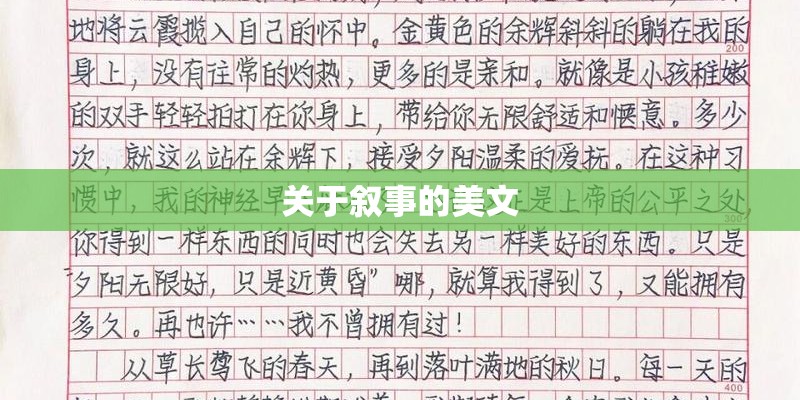 地将云霞揽入自己的怀中。金黄色的余辉斜斜的躺在我的
200
身上，没有往常的灼热，更多的是亲和。就像是小孩稚嫩
的双手轻轻拍打在你身上，带给你无限舒适和惬意。多少
次，就这么站在余辉下，接受夕阳温柔的爱抚。在这种习
惯中，我的神经早 是上帝的公平之处，
关于叙事的美文
300
你得到一样东西的同时也会失去另一样美好的东西。只是
"夕阳无限好，只是近黄昏"哪，就算我得到了，又能拥有
多久。再也许……我不曾拥有过！
从草长莺飞的春天，再到落叶满地的秋日。每一天的
400